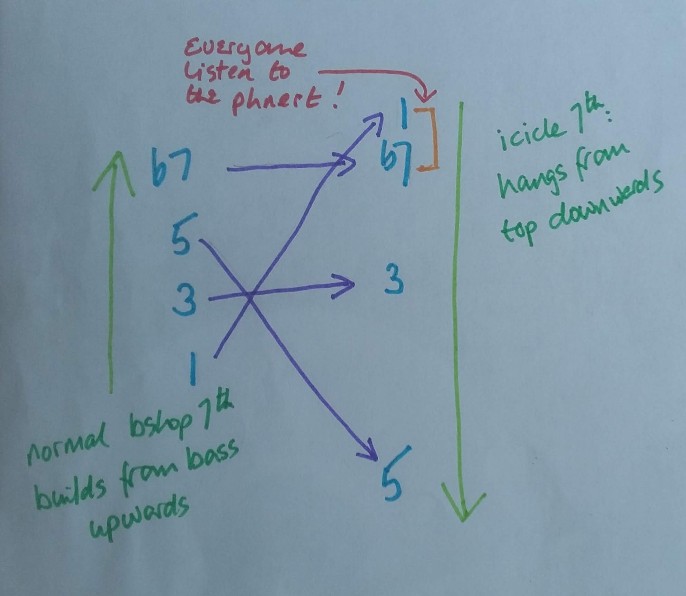 Everyone
listen to
the phnert!
1
b7
3
5
icicle 7th:
hangs from
top downwards
b7
5
3
1
normal bshop 7th
builds from bass
upwards